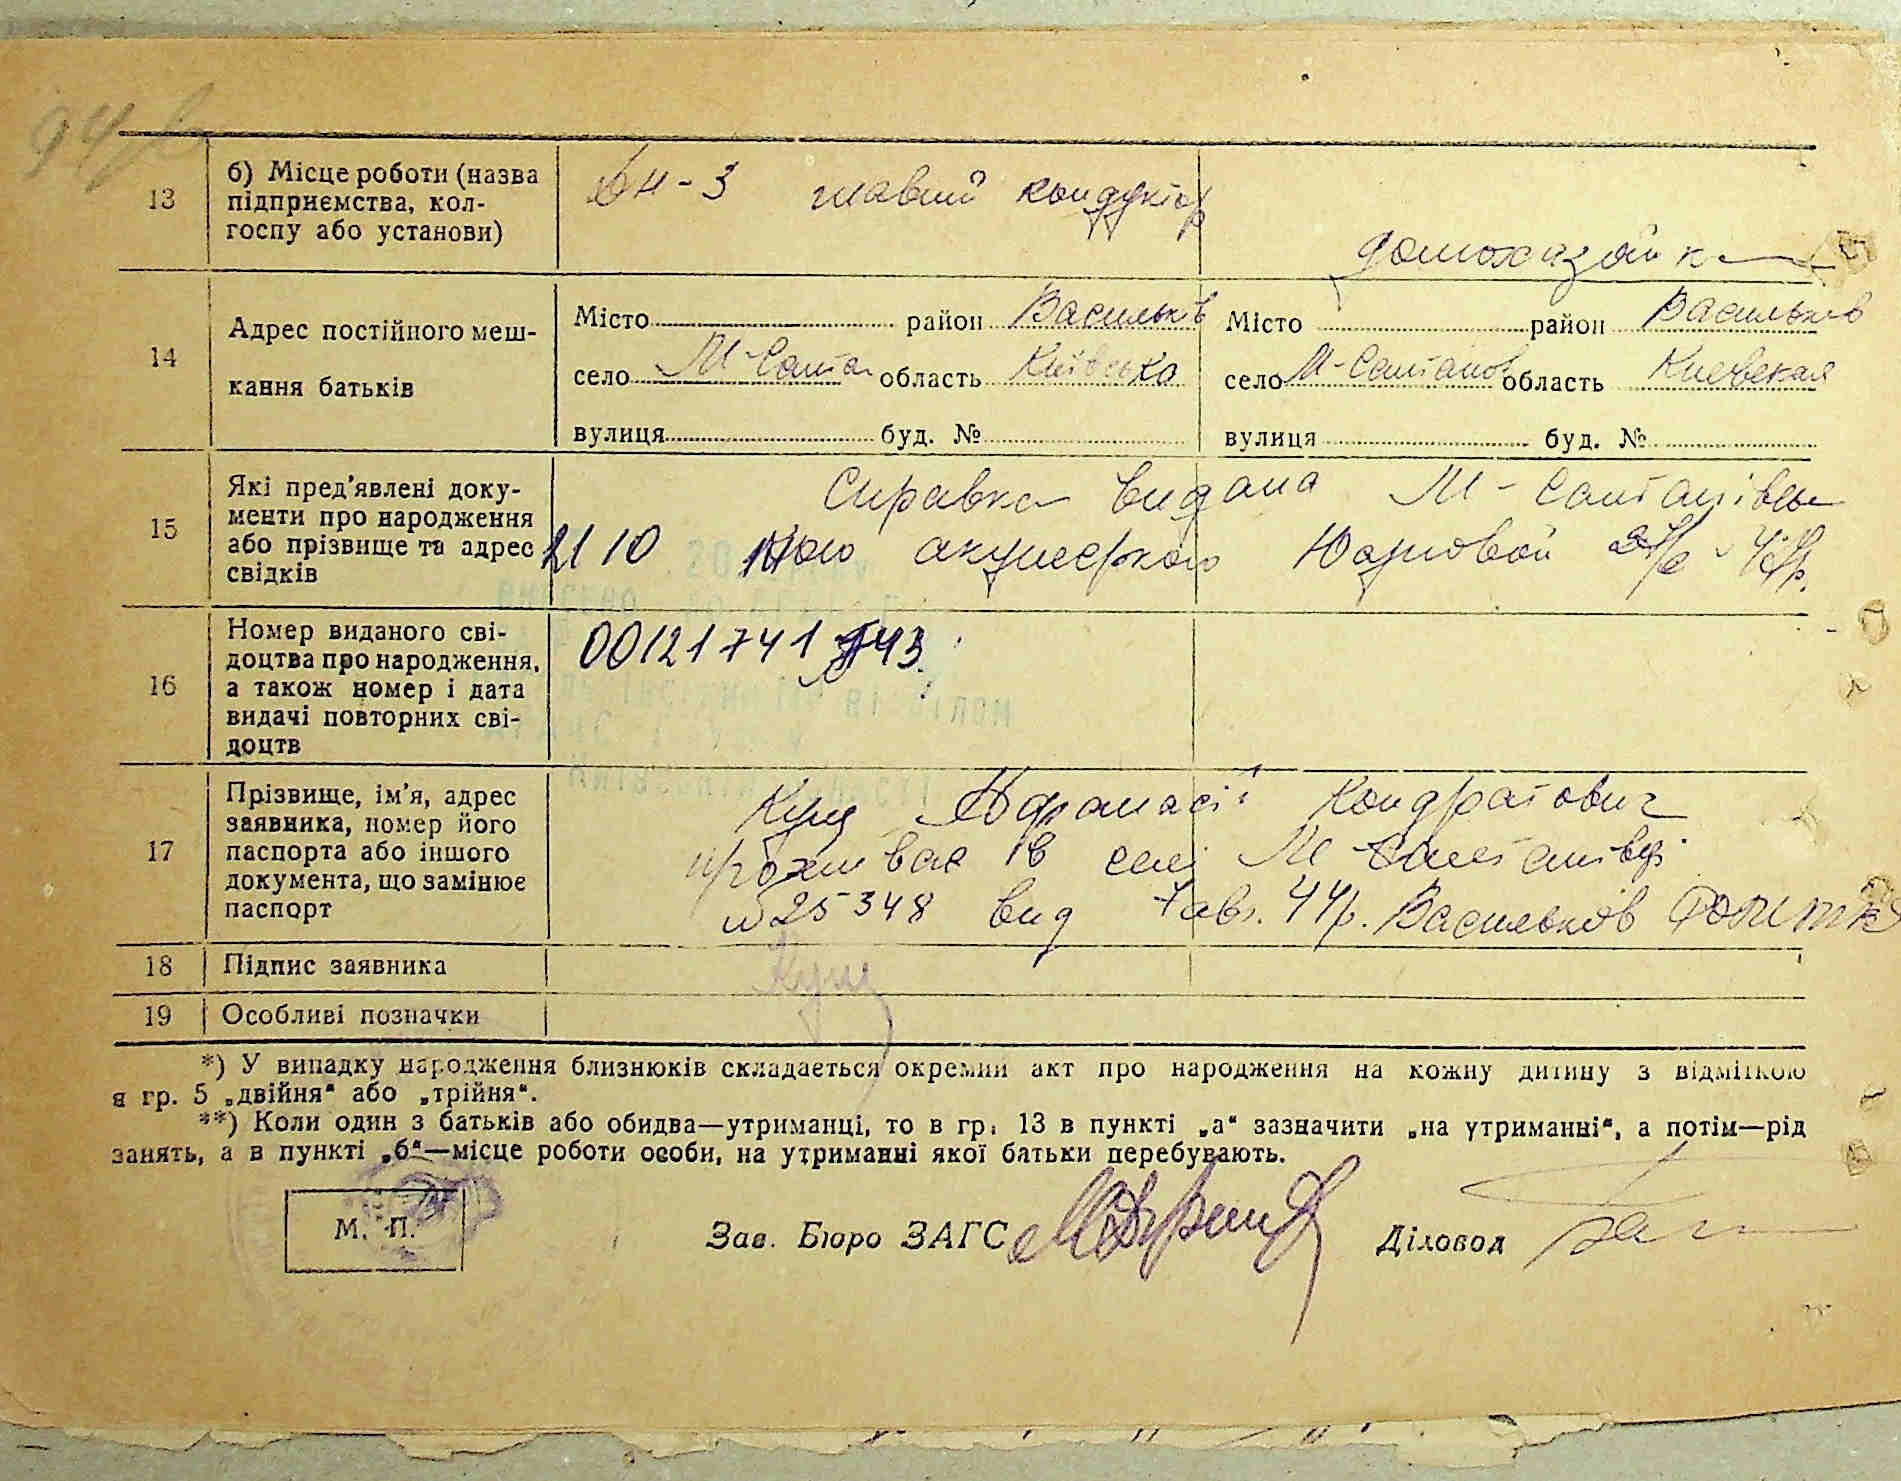 13
б) Місце роботи (назва
підприємства, кол-
госпу або установи)
ДН-3 главний кондуктор
домохазяйка
14
Адрес постійного меш-
кання батьків
Місто район Васильків
село М-Солтан область Київсько
вулиця буд. №
Місто район Васильков
село М-Солтанов область Киевская
вулиця буд. №
15
Які пред'явлені доку-
менти про народження
або прізвище та адрес
свідків
Справка видана М-Солтанівсь
21 10 кою акушеркою
16
Номер виданого сві-
доцтва про народження,
а також номер і дата
видачі повторних сві-
доцтв
00121741
17
Прізвище, ім'я, адрес
заявника, номер його
паспорта або іншого
документа, що замінює
паспорт
Кущ Афанасій Кондратович
проживає в селі М-Солтанівці
№ 25348 вид 7 авг. 44р. Васильков
18
Підпис заявника
Кущ
19
Особливі позначки
*) У випадку народження близнюків складається окремий акт про народження на кожну дитину з відміткою
в гр. 5 „двійня“ або „трійня“.
**) Коли один з батьків або обидва—утриманці, то в гр. 13 в пункті „а“ зазначити „на утриманні“, а потім—рід
занять, а в пункті „б“—місце роботи особи, на утриманні якої батьки перебувають.
М. П.
Зав. Бюро ЗАГС
Діловод